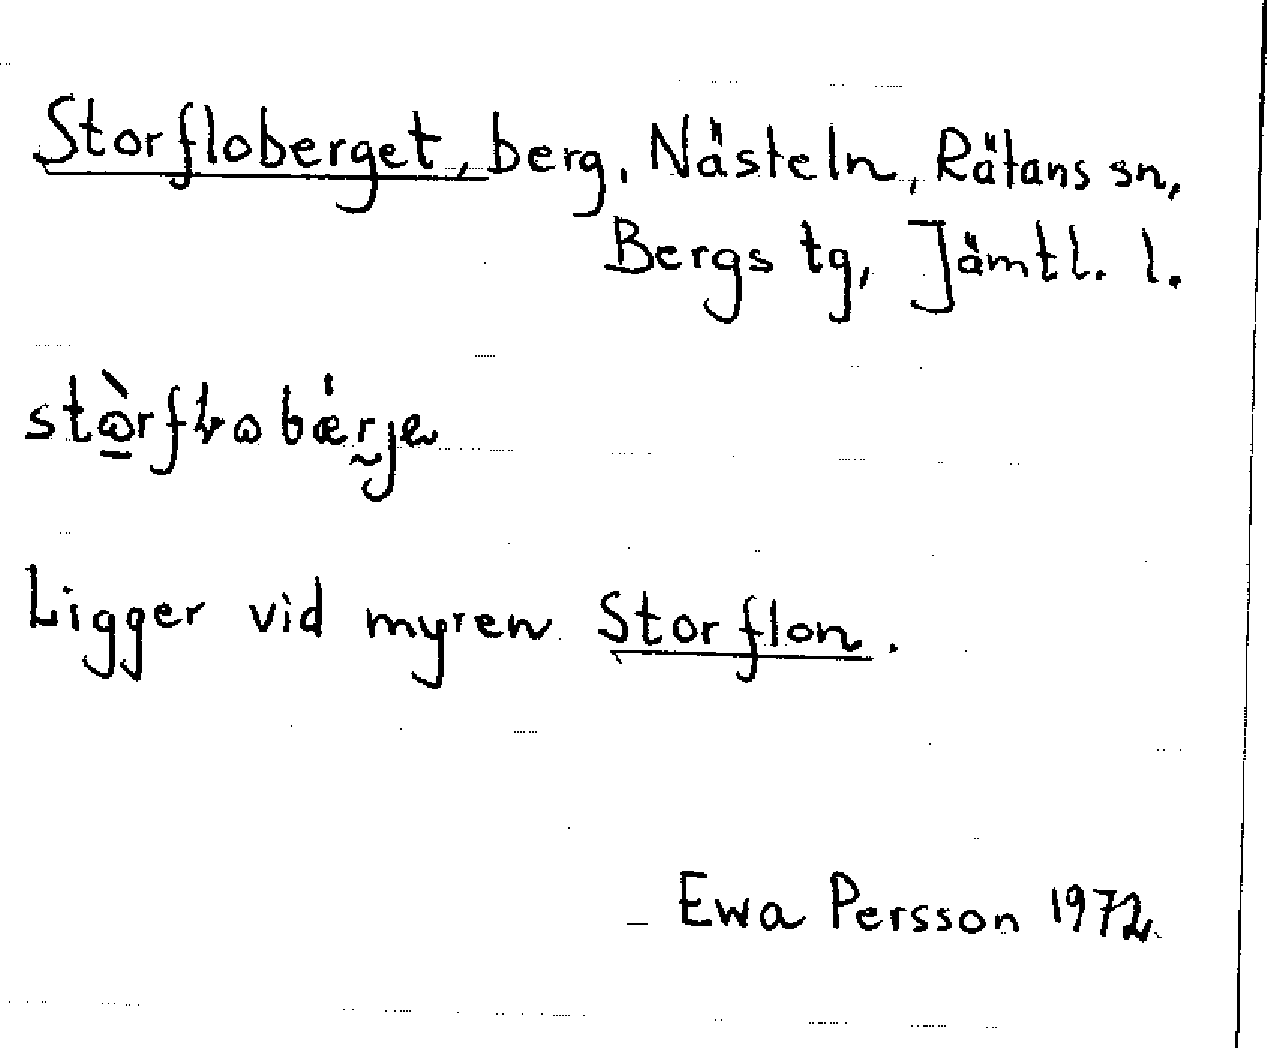 Storfloberget, berg, Nästeln, Rätans sn,
Bergs tg, Jämtl. l.
Ligger vid myren Storflon.
Ewa Persson 1972